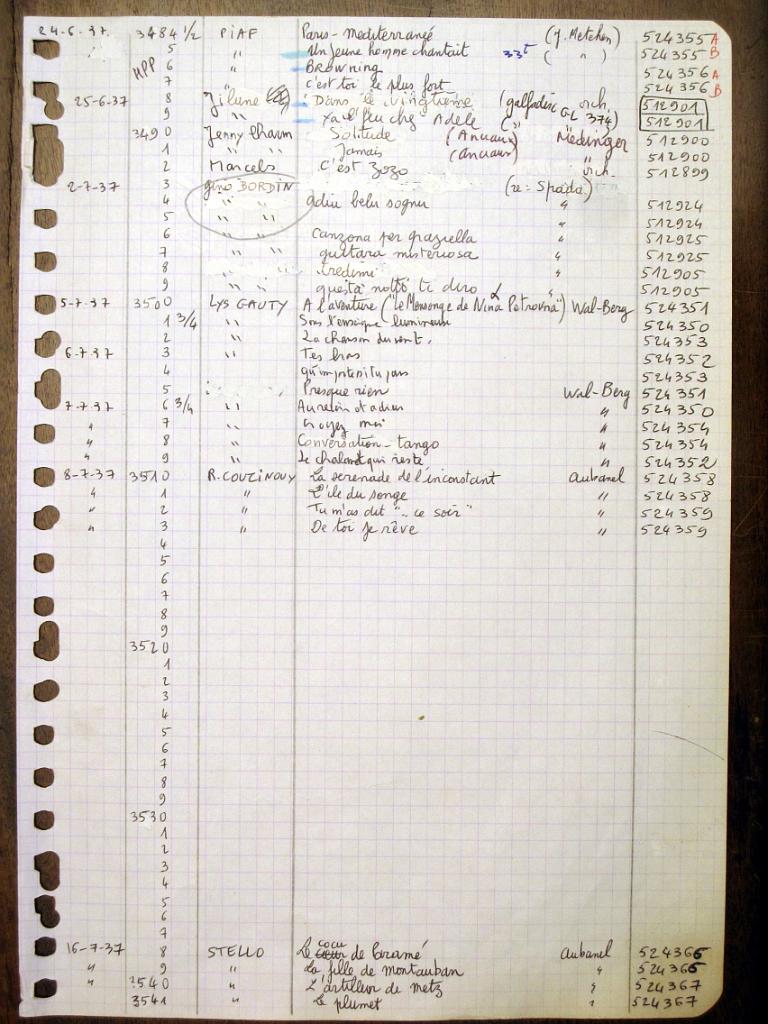 24-6-37. 3484 1/2 PiAF Paris-mediterranée (J. Metchen) 524355 A
5 " un jeune homme chantait 33t ( " ) 524355 B
HPP 6 " BROWNING 524356 A
7 c'est toi le plus fort 524356 B
25-6-37 8 Jilune Dans le vingtième (galfadisc orch. 512901
9 " Ya l'feu chez Adele ( " GL 374) 512901
3490 Jenny Solitude (Anuaux) Medinger 512900
1 " " Jamais (Anuaux) " 512900
2 Marcels c'est zozo orch. 512899
2-7-37 3 gino BORDIN (re: Spada)
4 " " adiu belu sognu " 512924
5 " " " 512924
6 " " Canzona per graziella " 512925
7 " " guittara misteriosa " 512925
8 " " Credimi " 512905
9 " " questa notte ti diro " 512905
5-7-37 3500 LYS GAUTY A l'aventure ("le Mensonge de Nina Petrovna") Wal-Berg 524351
1 3/4 " Sous l'enseigne lumineuse 524350
2 " La chanson du vent. 524353
6-7-37 3 " Tes bras 524352
4 qu'importe si tu pars 524353
5 Presque rien Wal-Berg 524351
7-7-37 6 3/4 " Au revoir et adieu " 524350
" 7 " Croyez moi " 524354
" 8 " Conversation-tango " 524354
" 9 " Le chaland qui reste " 524352
8-7-37 3510 R. COUZINOUY La serenade de l'inconstant Aubanel 524358
" 1 " L'ile du songe " 524358
" 2 " Tu m'as dit "..ce soir" " 524359
" 3 " De toi je rêve " 524359
4
5
6
7
8
9
3520
1
2
3
4
5
6
7
8
9
3530
1
2
3
4
5
6
7
16-7-37 8 STELLO Le cocu de Caramé Aubanel 524366
" 9 " La fille de montauban " 524366
" 3540 " L'artilleur de metz " 524367
3541 " Le plumet " 524367